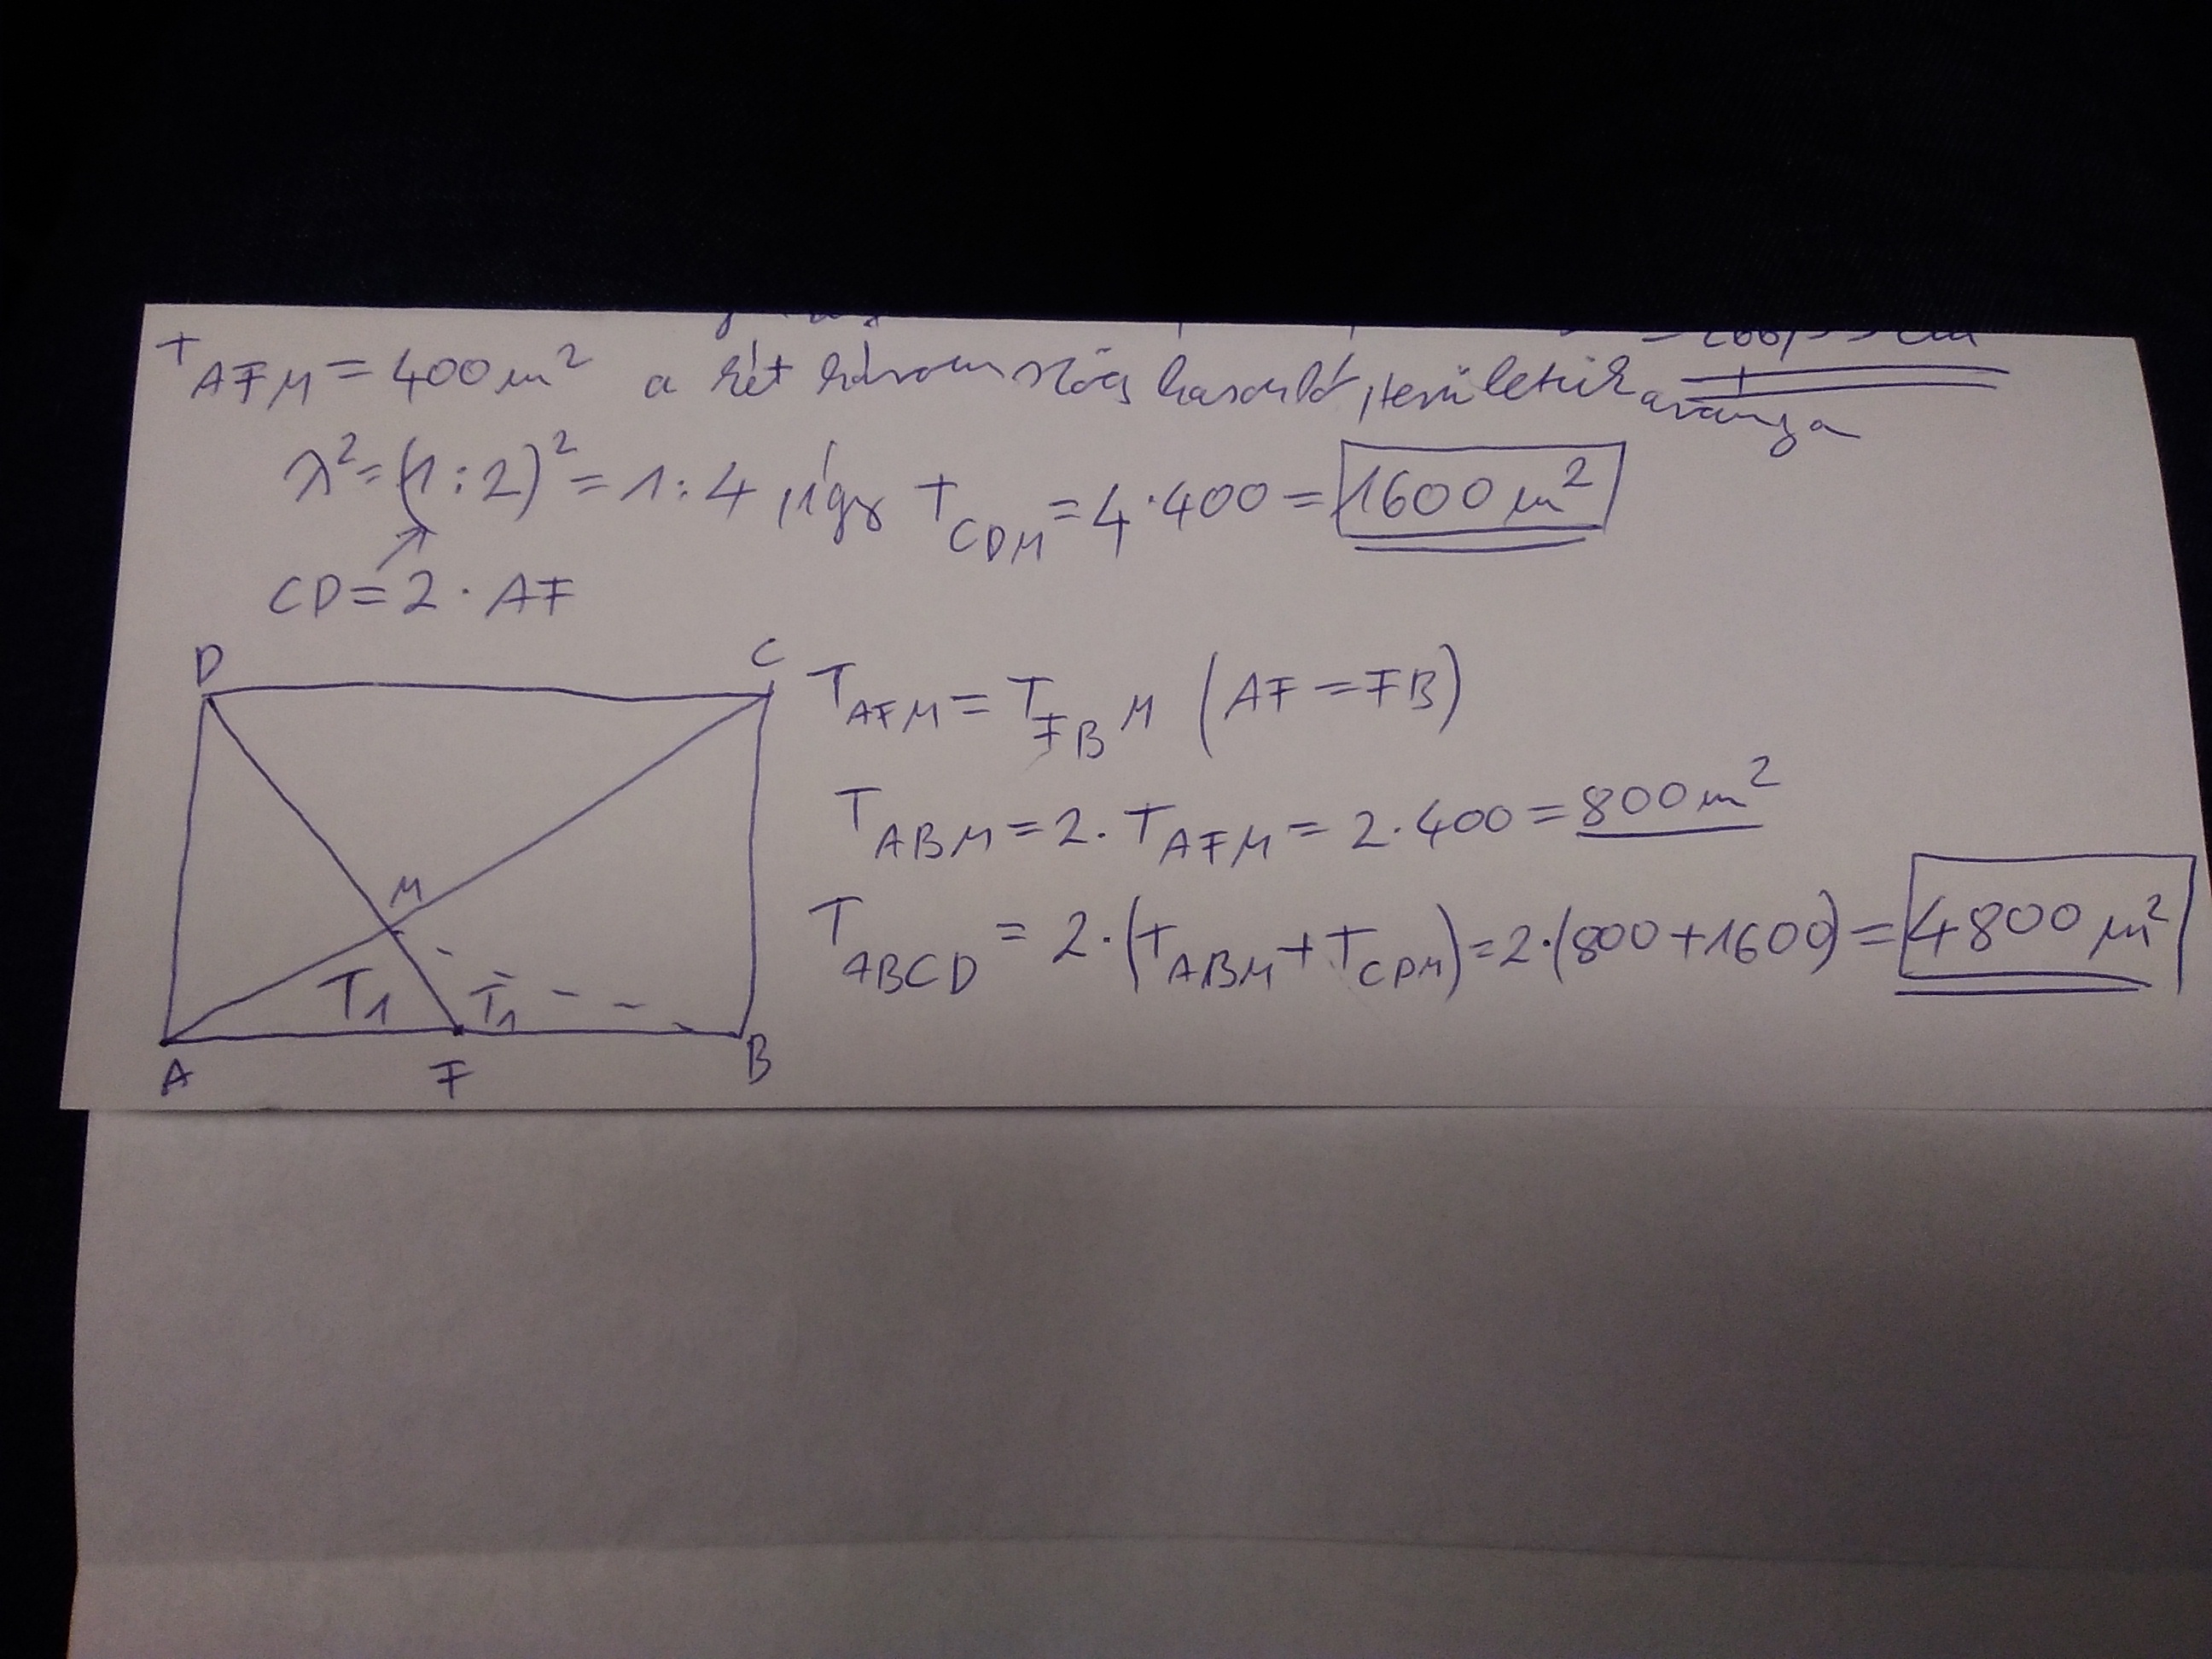 T AFM = 400 m² a két háromszög hasonló, területük aránya
λ² = (1:2)² = 1:4, így T CDM = 4·400 = 1600 m²
CD = 2 · AF
D
C
T AFM = T FBM (AF = FB)
T ABM = 2· T AFM = 2·400 = 800 m²
M
T ABCD = 2·(T ABM + T CDM) = 2·(800+1600) = 4800 m²
T1 T1
A F B